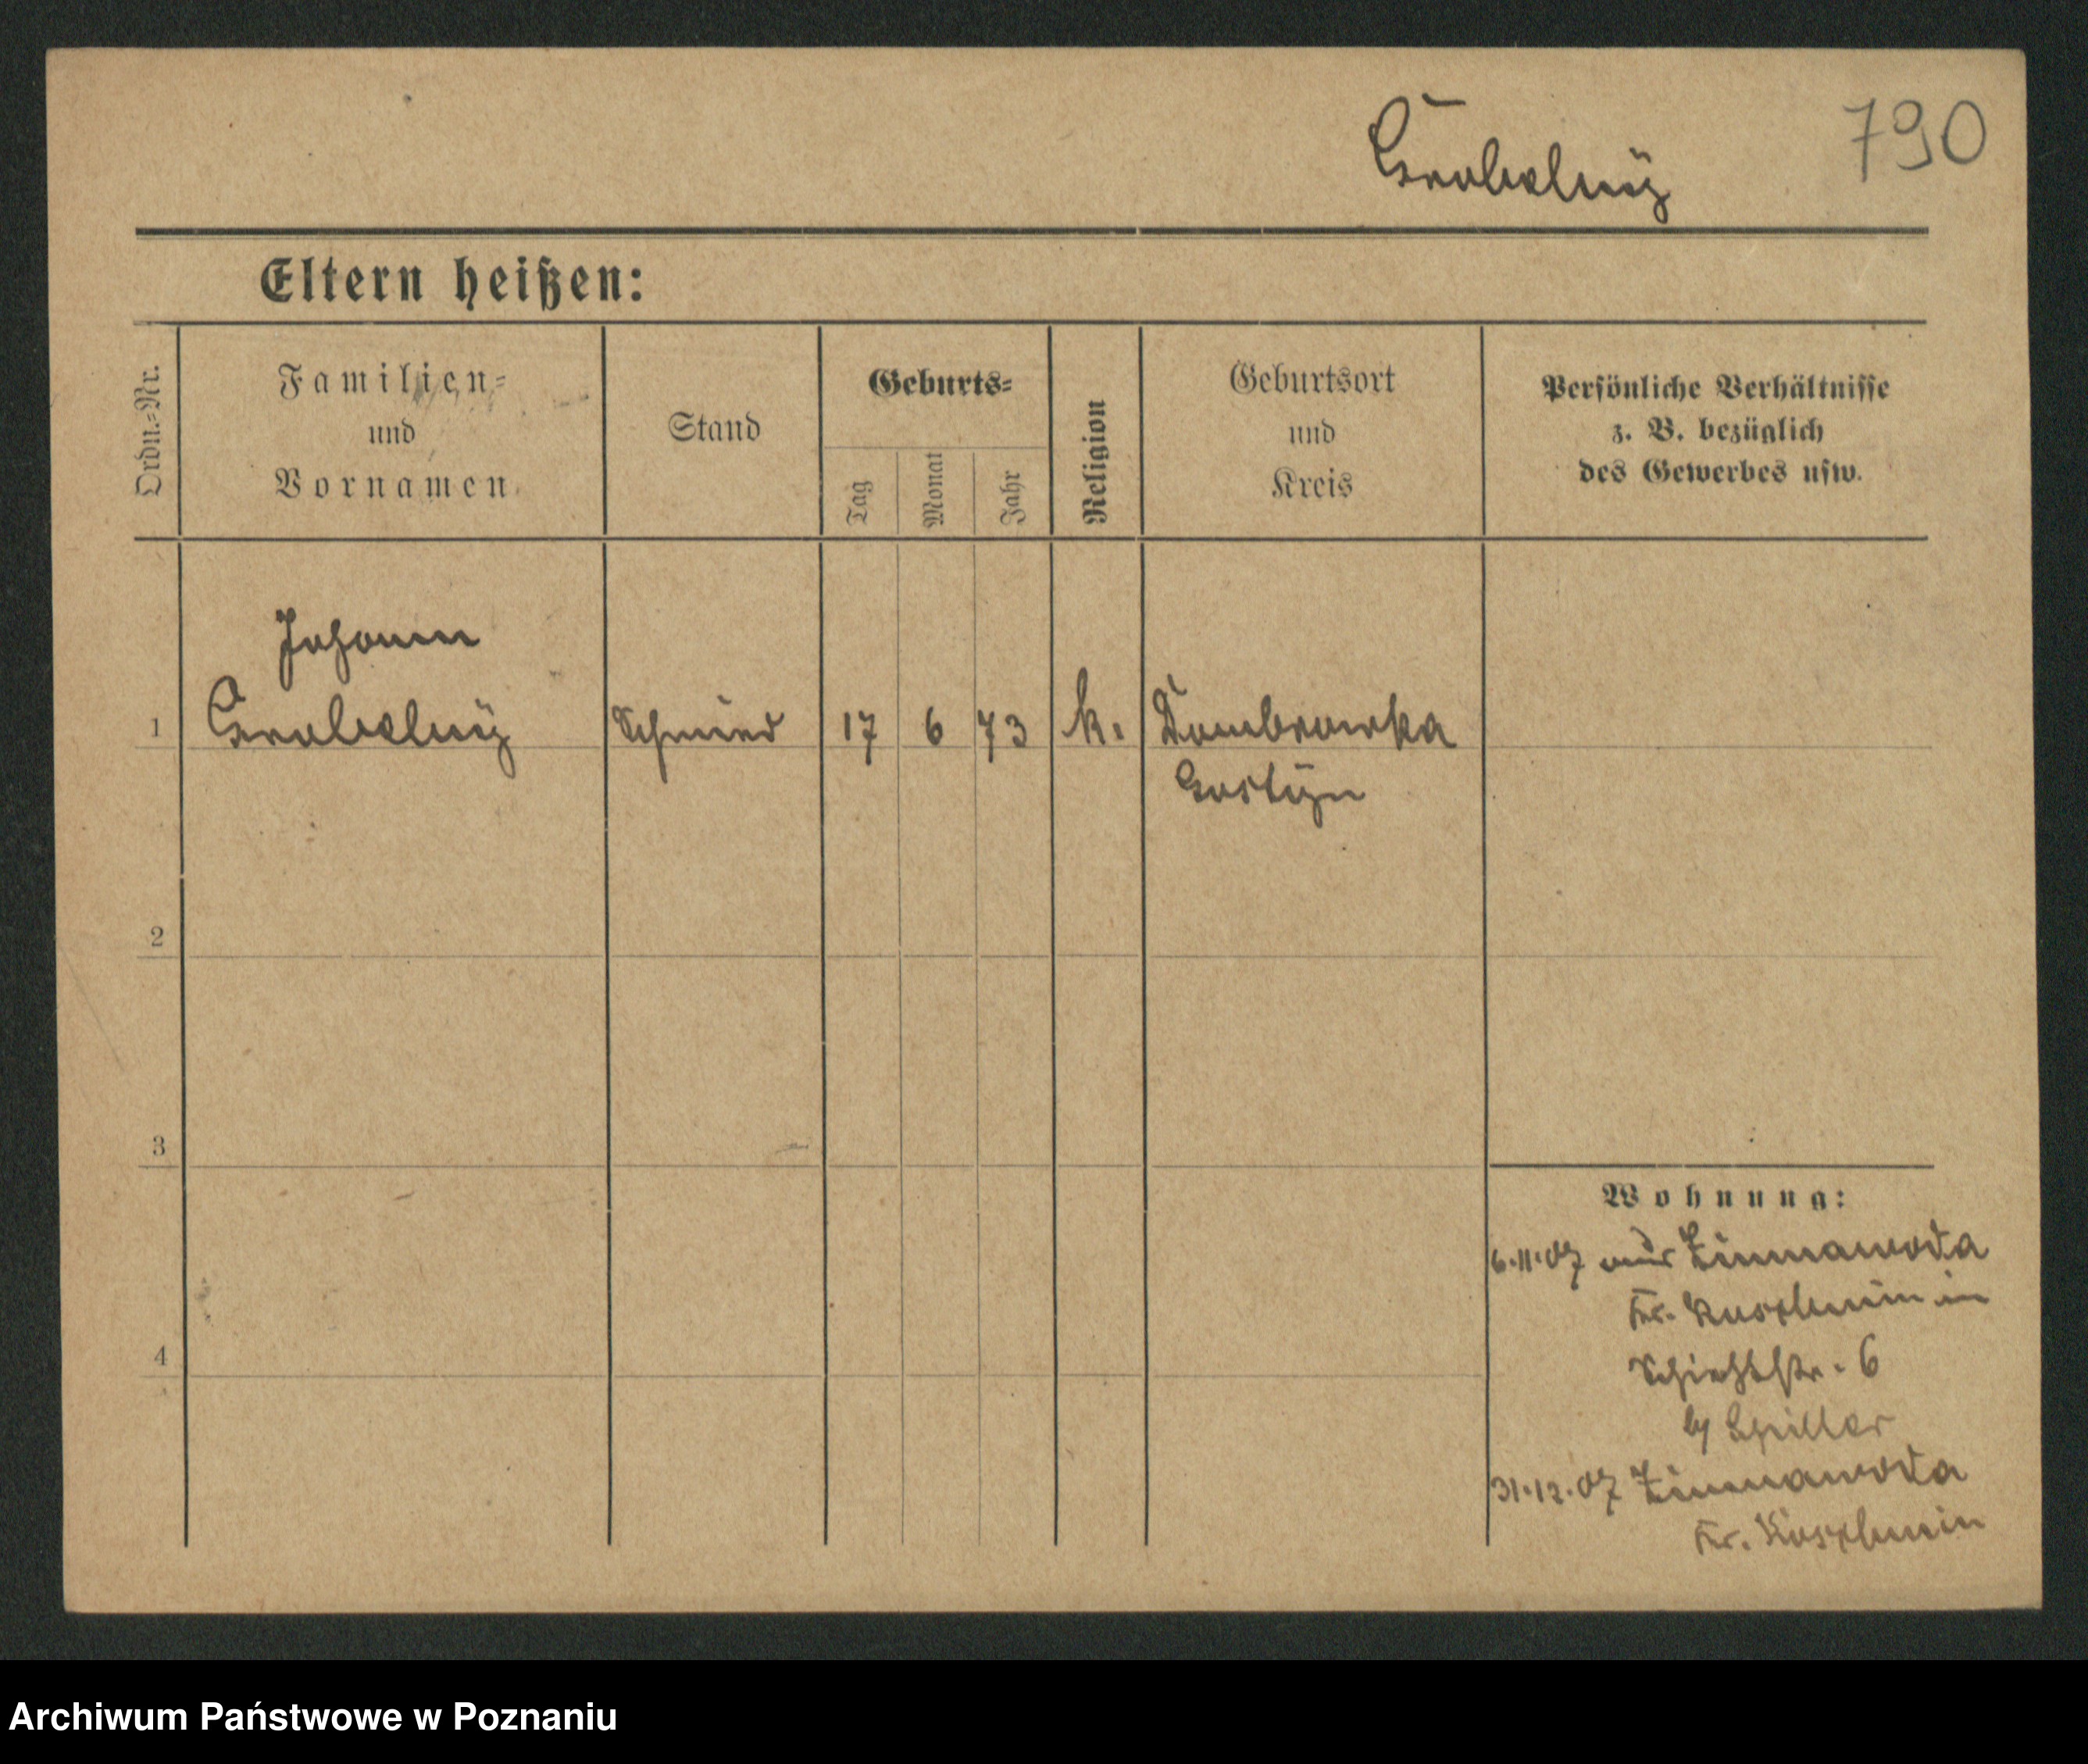 790
Grabelny
Eltern heißen:
Ordn.-Nr.
Familien-
und
Vornamen
Stand
Geburts-
Tag
Monat
Jahr
Religion
Geburtsort
und
Kreis
Persönliche Verhältnisse
z. B. bezüglich
des Gewerbes usw.
Johann
1 Grabelny Schmied 17 6 73 k. Dombrowka
Gostyn
2
3
4
Wohnung:
6.11.07 aus Zimnawoda
Kr. Koschmin in
Schießstr. 6
b/ Spiller
31.12.07 Zimnawoda
Kr. Koschmin
Archiwum Państwowe w Poznaniu